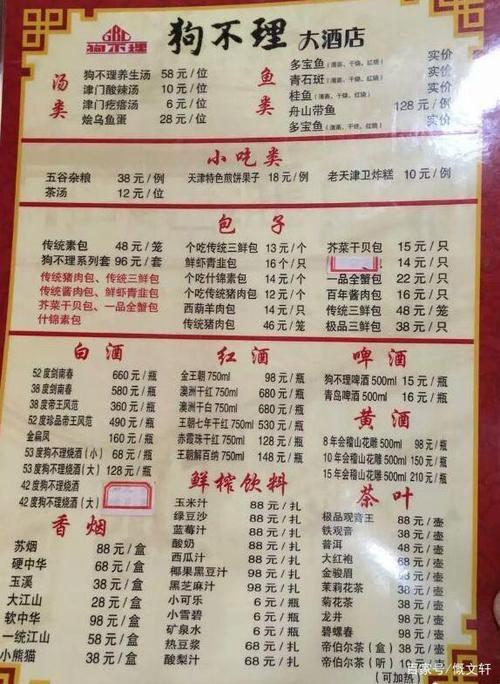 GBL
狗不理
狗不理 大酒店
汤类
狗不理养生汤 58 元 / 位
津门酸辣汤 10 元 / 位
津门疙瘩汤 6 元 / 位
烩乌鱼蛋 28 元 / 位
鱼类
多宝鱼(清蒸、干烧、红烧) 实价
青石斑(清蒸、干烧、红烧) 实价
桂鱼(清蒸、干烧、红烧) 实价
舟山带鱼 128 元 / 例
多宝鱼(清蒸、干烧、红烧) 实价
小吃类
五谷杂粮 38 元 / 例
天津特色煎饼果子 18 元 / 例
老天津卫炸糕 10 元 / 例
茶汤 12 元 / 位
包子
传统素包 48 元 / 笼
狗不理系列套 96 元 / 套
传统猪肉包、传统三鲜包
传统酱肉包、鲜虾青韭包
芥菜干贝包、一品全蟹包
什锦素包
个吃传统三鲜包 13 元 / 个
鲜虾青韭包 16 元 / 个
个吃什锦素包 14 元 / 个
个吃传统猪肉包 12 元 / 个
西葫羊肉包 14 元 / 只
传统猪肉包 46 元 / 笼
芥菜干贝包 15 元 / 只
14 元 / 只
一品全蟹包 22 元 / 只
百年酱肉包 16 元 / 只
传统三鲜包 48 元 / 笼
极品三鲜包 38 元 / 只
白酒
52度剑南春 660 元 / 瓶
38度剑南春 580 元 / 瓶
38度帝王风范 360 元 / 瓶
52度珍品帝王风范 490 元 / 瓶
金扁凤 160 元 / 瓶
53度狗不理烧酒(小) 68 元 / 瓶
53度狗不理烧酒(大) 128 元 / 瓶
42度狗不理烧酒
42度狗不理烧酒(大)
红酒
金王朝 750ml 98 元 / 瓶
澳洲干红 750ml 280 元 / 瓶
澳洲干白 750ml 680 元 / 瓶
王朝七年干红 750ml 530 元 / 瓶
赤霞珠干红 750ml 138 元 / 瓶
王朝解百纳 750ml 148 元 / 瓶
啤酒
狗不理啤酒 500ml 15 元 / 瓶
青岛啤酒 500ml 16 元 / 瓶
黄酒
8年会稽山花雕 500ml 98元 / 瓶
10年会稽山花雕 500ml 150元 / 瓶
15年会稽山花雕 500ml 210元 / 瓶
香烟
苏烟 88 元 / 盒
硬中华 68 元 / 盒
玉溪 38 元 / 盒
大江山 28 元 / 盒
软中华 98 元 / 盒
一统江山 58 元 / 盒
小熊猫 38 元 / 盒
鲜榨饮料
玉米汁 88 元 / 扎
绿豆沙 88 元 / 扎
蓝莓汁 88 元 / 扎
酸奶 88 元 / 扎
西瓜汁 88 元 / 扎
椰果黑豆汁 98 元 / 扎
黑芝麻汁 98 元 / 扎
小可乐 6 元 / 瓶
小雪碧 6 元 / 瓶
矿泉水 6 元 / 瓶
热豆浆 68 元 / 扎
酸梨汁 68 元 / 扎
茶叶
极品观音王 88 元 / 壶
铁观音 38 元 / 壶
普洱 48 元 / 壶
大红袍 68 元 / 壶
金骏眉 98 元 / 壶
茉莉花茶 38 元 / 壶
菊花茶 28 元 / 壶
龙井 58 元 / 壶
碧螺春 98 元 / 壶
帝伯尔茶(盒)
帝伯尔茶(听) 10 元 / 听
(可加热)
百家号/慨文轩